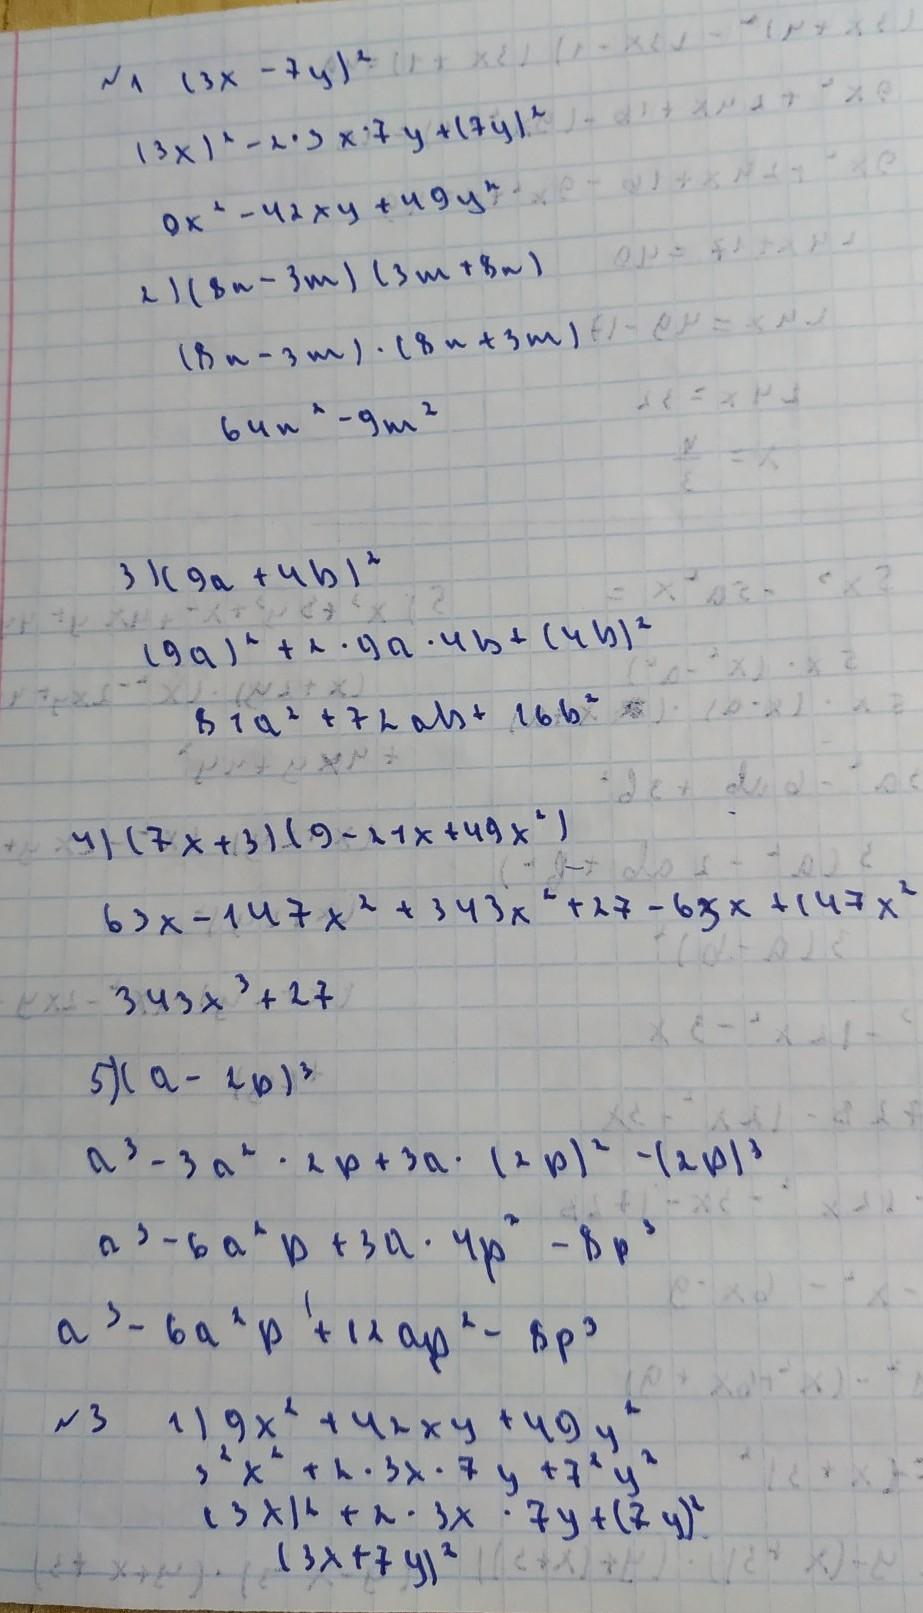 №1 (3x - 7y)²
(3x)² - 2·3x·7y + (7y)²
9x² - 42xy + 49y²
2) (8n - 3m) (3m + 8n)
(8n - 3m) · (8n + 3m)
64n² - 9m²
3) (9a + 4b)²
(9a)² + 2·9a·4b + (4b)²
81a² + 72ab + 16b²
4) (7x + 3) (9 - 21x + 49x²)
63x - 147x² + 343x² + 27 - 63x + 147x²
343x³ + 27
5) (a - 2p)³
a³ - 3a² · 2p + 3a · (2p)² - (2p)³
a³ - 6a²p + 3a · 4p² - 8p³
a³ - 6a²p + 12ap² - 8p³
№3 1) 9x² + 42xy + 49y²
3²x² + 2·3x·7y + 7²y²
(3x)² + 2·3x·7y + (7y)²
(3x + 7y)²